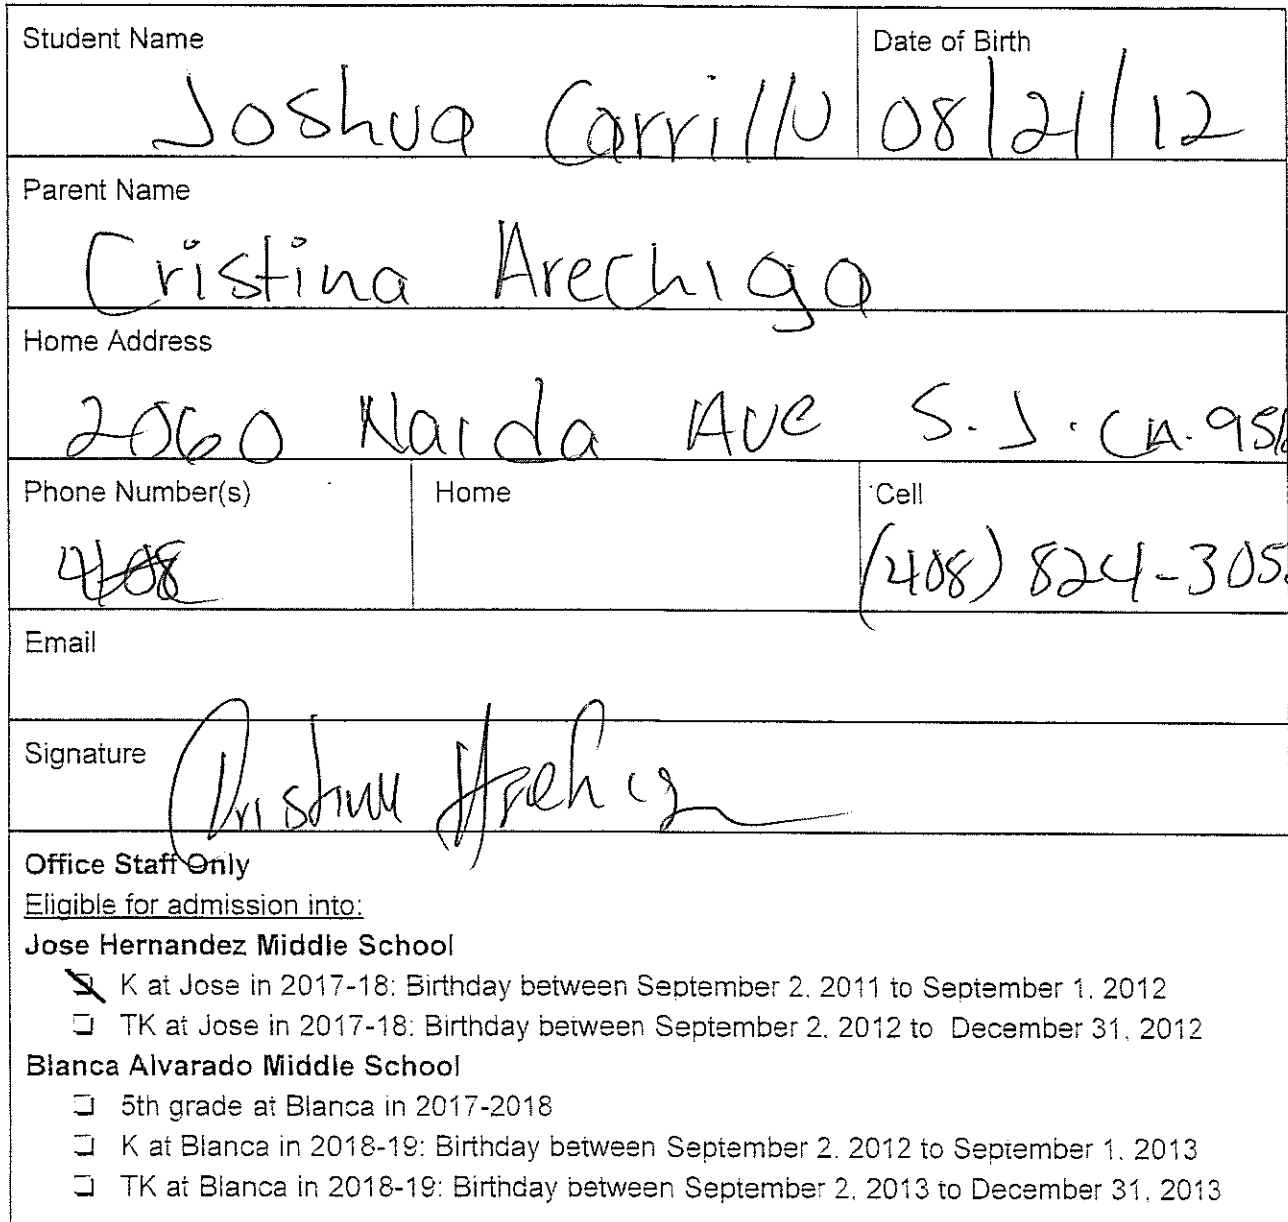 Student Name
Date of Birth
Joshua Carrillo
08/21/12
Parent Name
Cristina Arechiga
Home Address
2060 Naida Ave S.J. CA. 951
Phone Number(s)
Home
Cell
408
(408) 824-305
Email
Signature
Office Staff Only
Eligible for admission into:
Jose Hernandez Middle School
K at Jose in 2017-18: Birthday between September 2, 2011 to September 1, 2012
TK at Jose in 2017-18: Birthday between September 2, 2012 to December 31, 2012
Blanca Alvarado Middle School
5th grade at Blanca in 2017-2018
K at Blanca in 2018-19: Birthday between September 2, 2012 to September 1, 2013
TK at Blanca in 2018-19: Birthday between September 2, 2013 to December 31, 2013